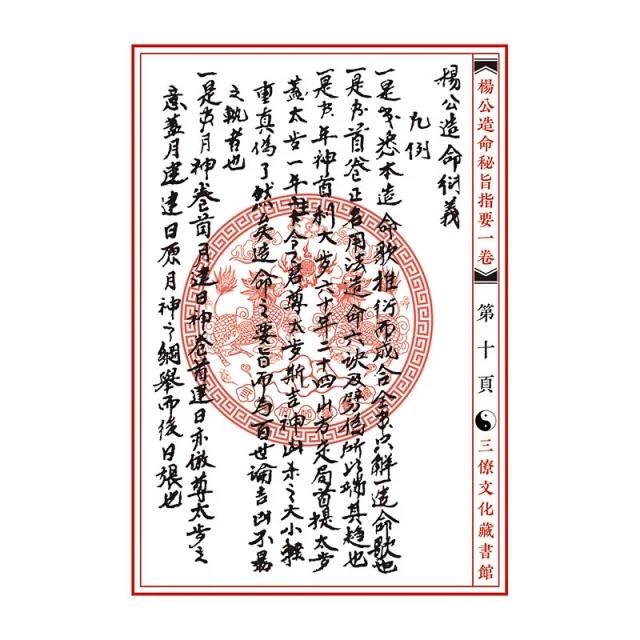 楊公造命秘旨指要一卷
第十頁
三僚文化藏書館
楊公造命衍義
凡例
一是书悉本造命歌推衍而成合全书只解造命歌也
一是书首卷正名用法造命六訣及闢偽所以端其趋也
一是书年神首列太歲六十年二十四山方定局首提太歲
蓋太歲一年令君尊太歲斯吉神凶杀之大小轻
重真偽了然矣造命之要旨而为百世論吉凶不易
之執者也
一是书月神卷首月建日神卷首建日亦倣尊太歲之
意蓋月建建日原月神之綱舉而後日張也